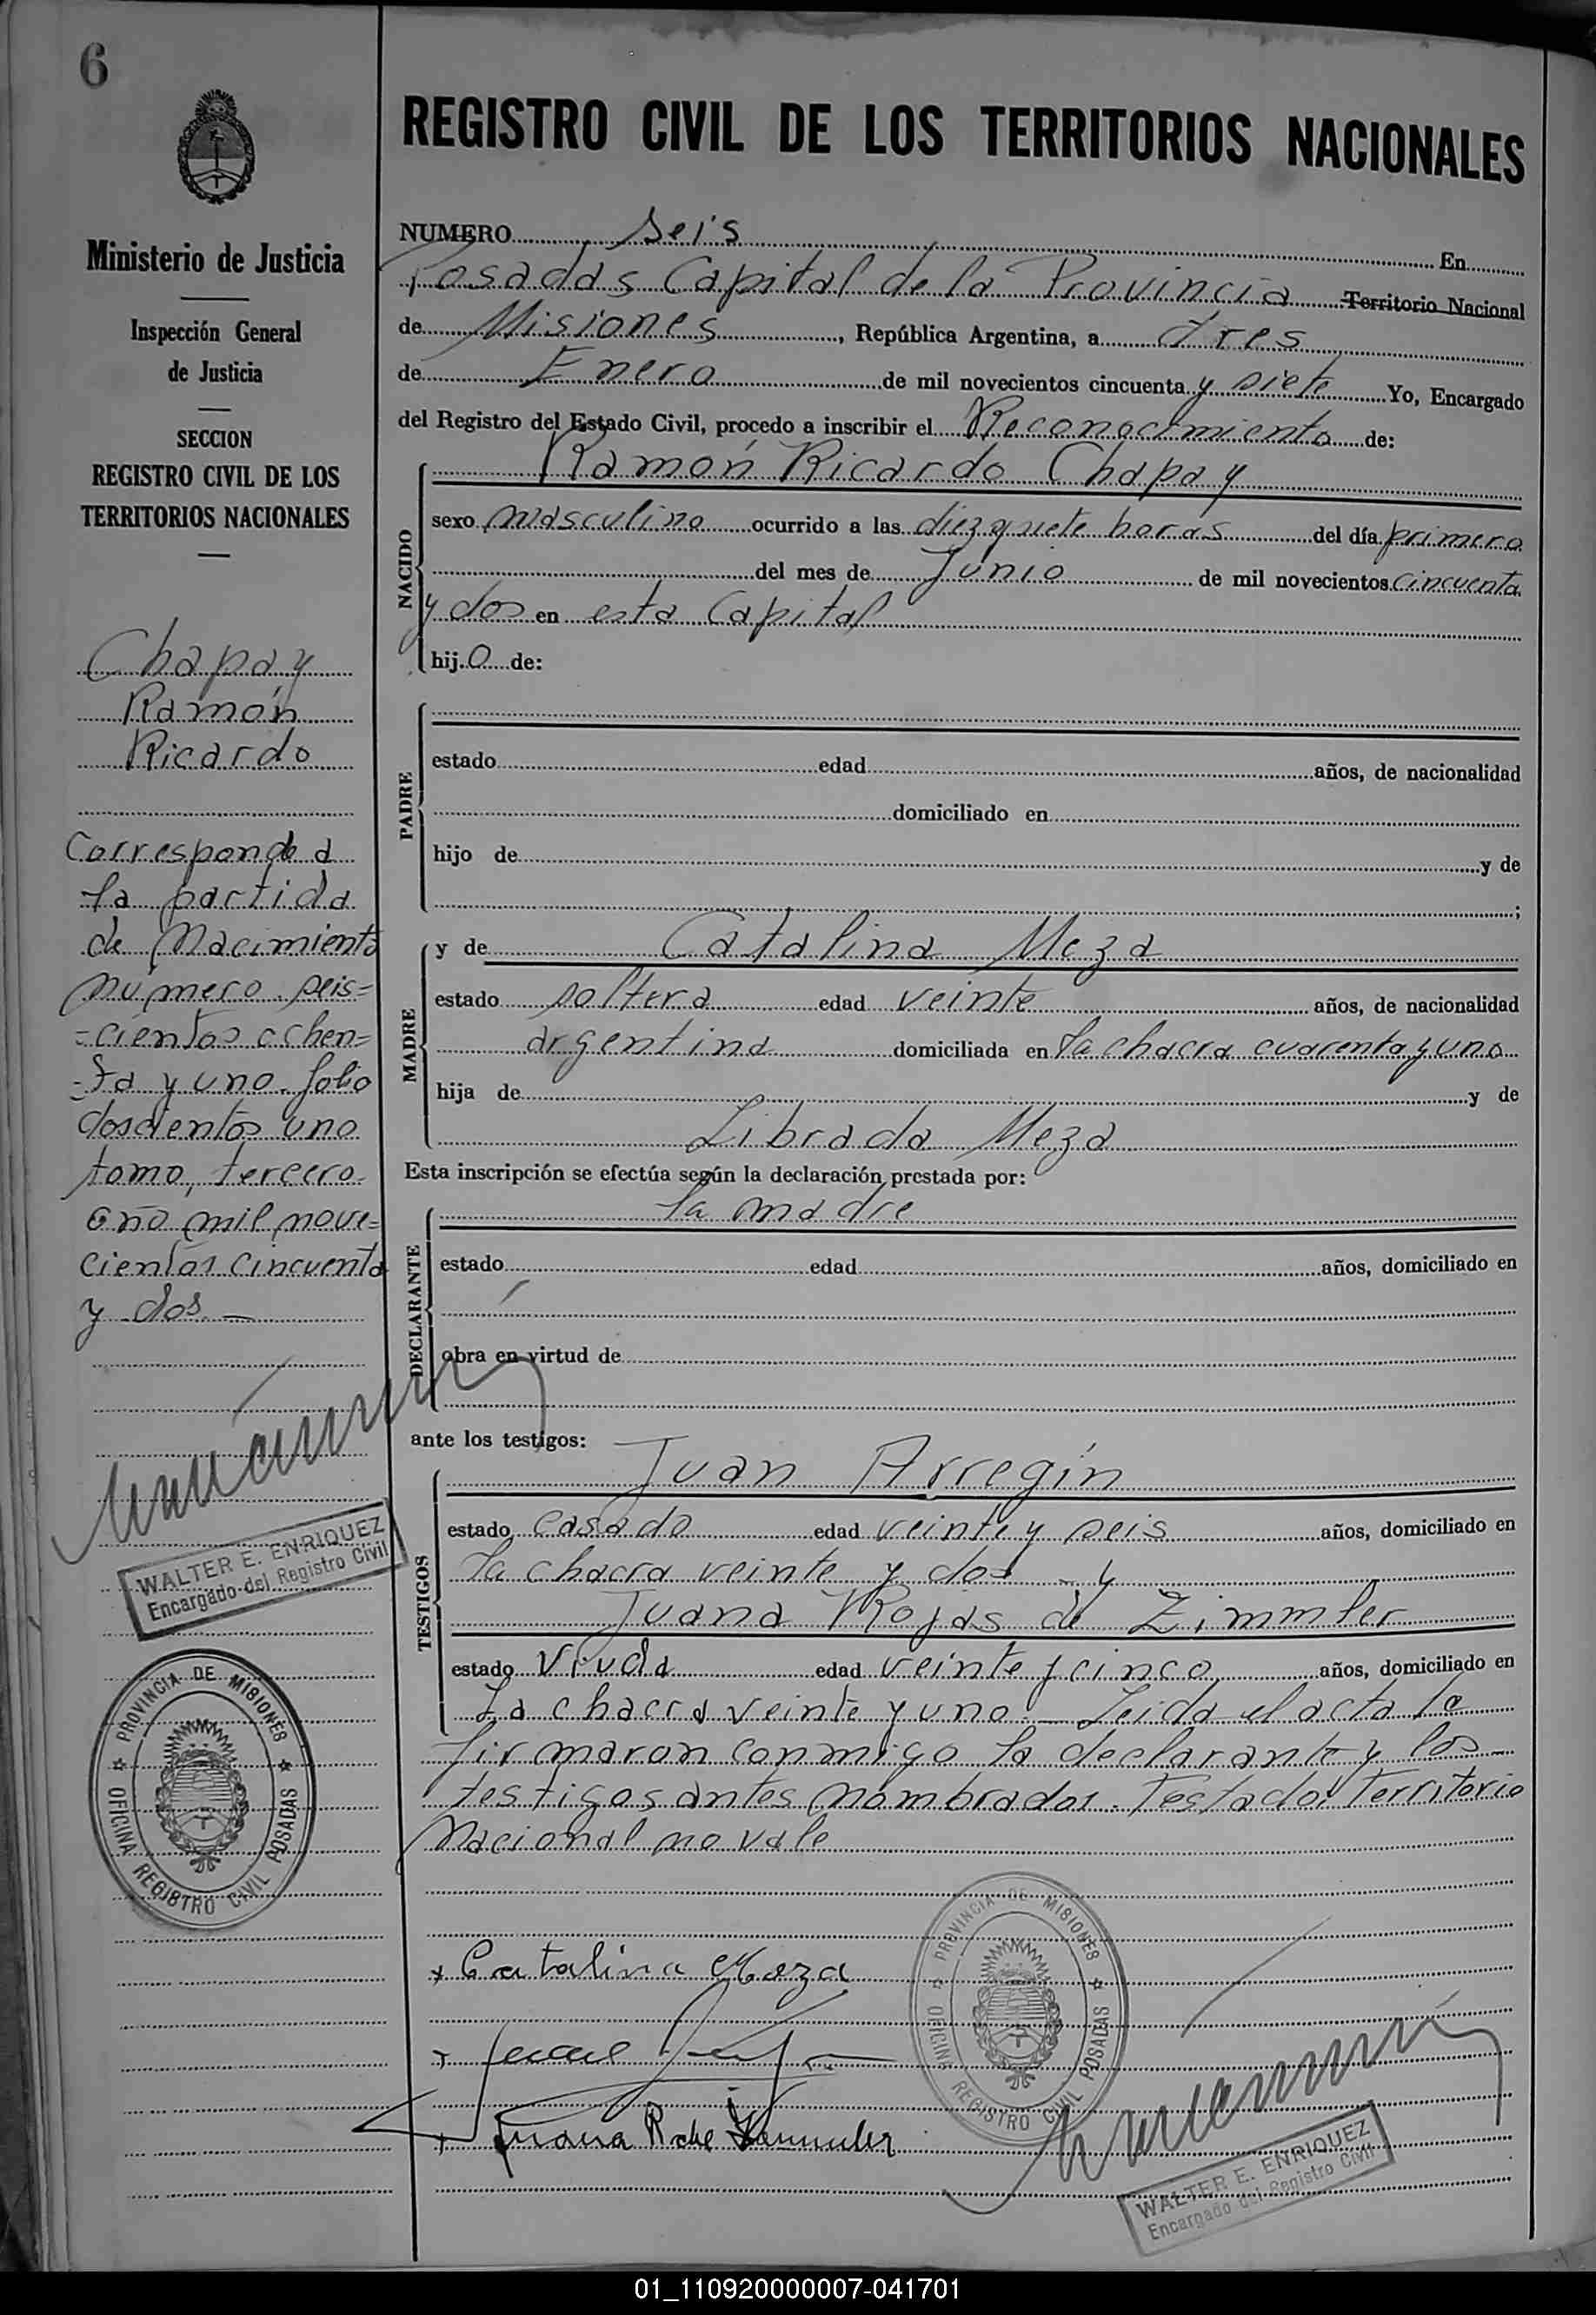 6
Ministerio de Justicia
Inspección General
de Justicia
SECCION
REGISTRO CIVIL DE LOS
TERRITORIOS NACIONALES
Chapay
Ramón
Ricardo
Corresponde a
la partida
de Nacimiento
número seis=
=cientos ochen=
=ta y uno folio
doscientos uno
tomo, tercero
año mil nove=
cientos cincuenta
y dos.—
WALTER E. ENRIQUEZ
Encargado del Registro Civil
PROVINCIA DE MISIONES
OFICINA REGISTRO CIVIL POSADAS
REGISTRO CIVIL DE LOS TERRITORIOS NACIONALES
NUMERO seis En
Posadas Capital de la Provincia Territorio Nacional
de Misiones, República Argentina, a tres
de Enero de mil novecientos cincuenta y siete Yo, Encargado
del Registro del Estado Civil, procedo a inscribir el Reconocimiento de:
NACIDO
Ramón Ricardo Chapay
sexo masculino ocurrido a las diez y siete horas del día primero
del mes de Junio de mil novecientos cincuenta
y dos en esta Capital
hijo de:
PADRE
estado edad años, de nacionalidad
domiciliado en
hijo de y de
;
MADRE
y de Catalina Meza
estado soltera edad veinte años, de nacionalidad
argentina domiciliada en la chacra cuarenta y uno
hija de y de
Librada Meza
Esta inscripción se efectúa según la declaración prestada por:
DECLARANTE
la madre
estado edad años, domiciliado en
obra en virtud de
ante los testigos:
TESTIGOS
Juan Arregin
estado casado edad veinte y seis años, domiciliado en
la chacra veinte y dos - y
Juana Rojas de Zimmler
estado viuda edad veinte y cinco años, domiciliado en
La chacra veinte y uno - Leida el acta la
firmaron conmigo la declarante y los
testigos antes nombrados. Testado: Territorio
Nacional no vale
x Catalina Meza
Juana R de Zimmler
PROVINCIA DE MISIONES
OFICINA REGISTRO CIVIL POSADAS
WALTER E. ENRIQUEZ
Encargado del Registro Civil
01_110920000007-041701